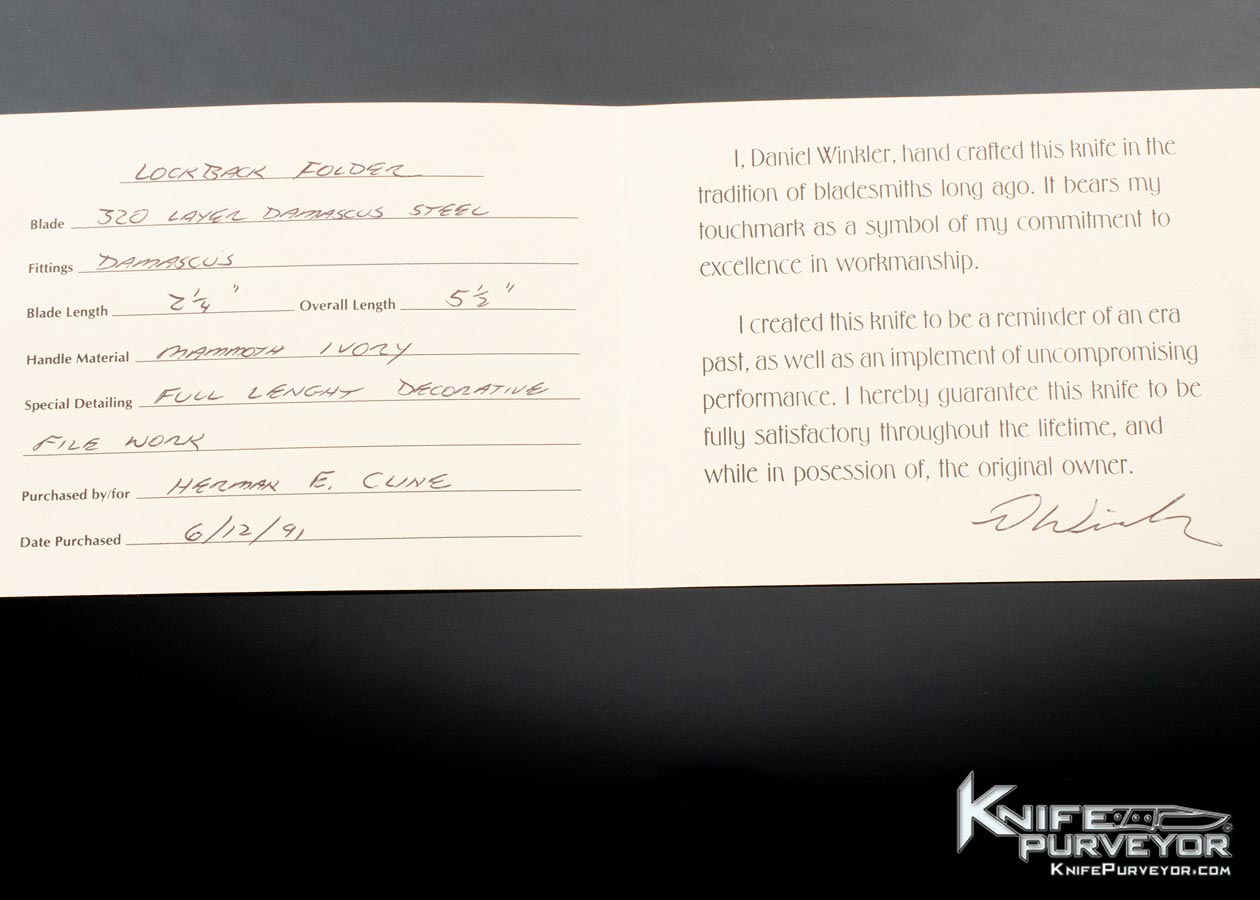 LOCKBACK FOLDER
Blade 320 LAYER DAMASCUS STEEL
Fittings DAMASCUS
Blade Length 2 1/4 " Overall Length 5 1/2 "
Handle Material MAMMOTH IVORY
Special Detailing FULL LENGHT DECORATIVE
FILE WORK
Purchased by/for HERMAN E. CLINE
Date Purchased 6/12/91
I, Daniel Winkler, hand crafted this knife in the
tradition of bladesmiths long ago. It bears my
touchmark as a symbol of my commitment to
excellence in workmanship.
I created this knife to be a reminder of an era
past, as well as an implement of uncompromising
performance. I hereby guarantee this knife to be
fully satisfactory throughout the lifetime, and
while in posession of, the original owner.
D Winkler
KNIFE
PURVEYOR
KNIFEPURVEYOR.COM